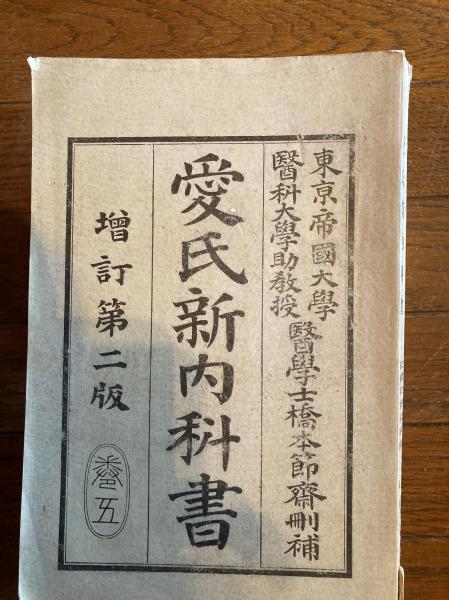 東亰帝國大學
醫科大學助敎授
醫學士橋本節齋刪補
愛氏新內科書
增訂第二版
卷五